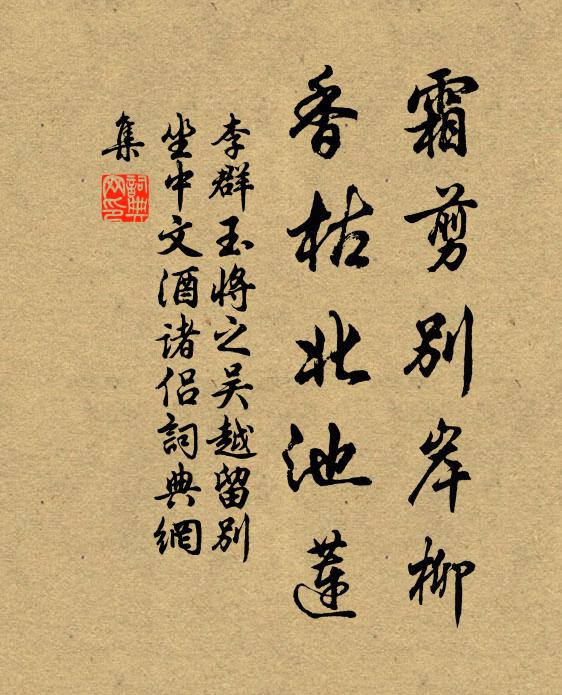 霜剪別岸柳
香枯北池蓮
李群玉將之吴越留別
坐中文酒诸侣詞典網
集
詞典
网印